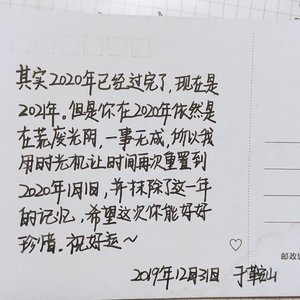 其实2020年已经过完了,现在是
2021年。但是你在2020年依然是
在荒废光阴,一事无成,所以我
用时光机让时间再次重置到
2020年1月1日,并抹除了这一年
的记忆,希望这次你能好好
珍惜。祝好运~
2019年12月31日 于鞍山
邮政编